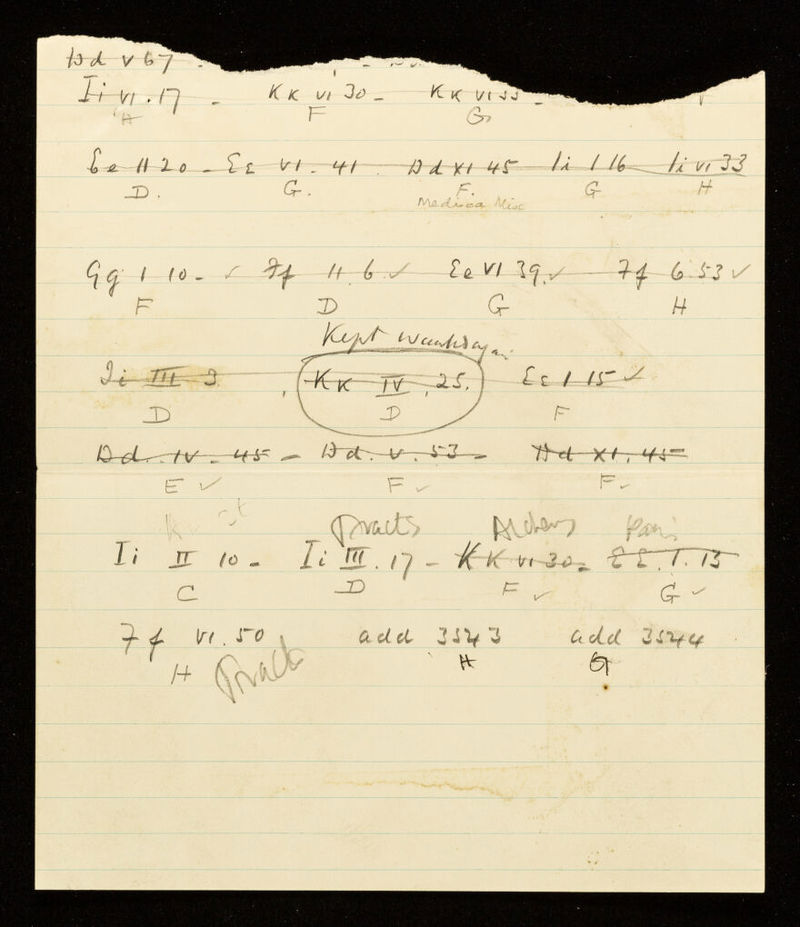 Dd v 67 -
Ii VI . 17 - Kk VI 30 - Kk VI 33 -
H F G
Ee 11 20 - Ee VI . 41 Dd XI 45 Ii I 16 Ii VI 33
D. G. F. G H
Medica Misc
Gg 1 10 - ✓ Ff 11 6 ✓ Ee VI 39. ✓ Ff 6 53 ✓
F D G H
Kept
Ii III 3 , Kk IV . 25. Ee I 15 ✓
D D F
Dd . IV . 45 - Dd . V . 53 - Dd XI . 45
E ✓ F ✓ F ✓
Tracts Paris
Ii II 10 - Ii III . 17 - Kk VI 30 - EE . I . 13
C D F ✓ G ✓
Ff VI . 50 add 3543 add 3544
H Tracts H G